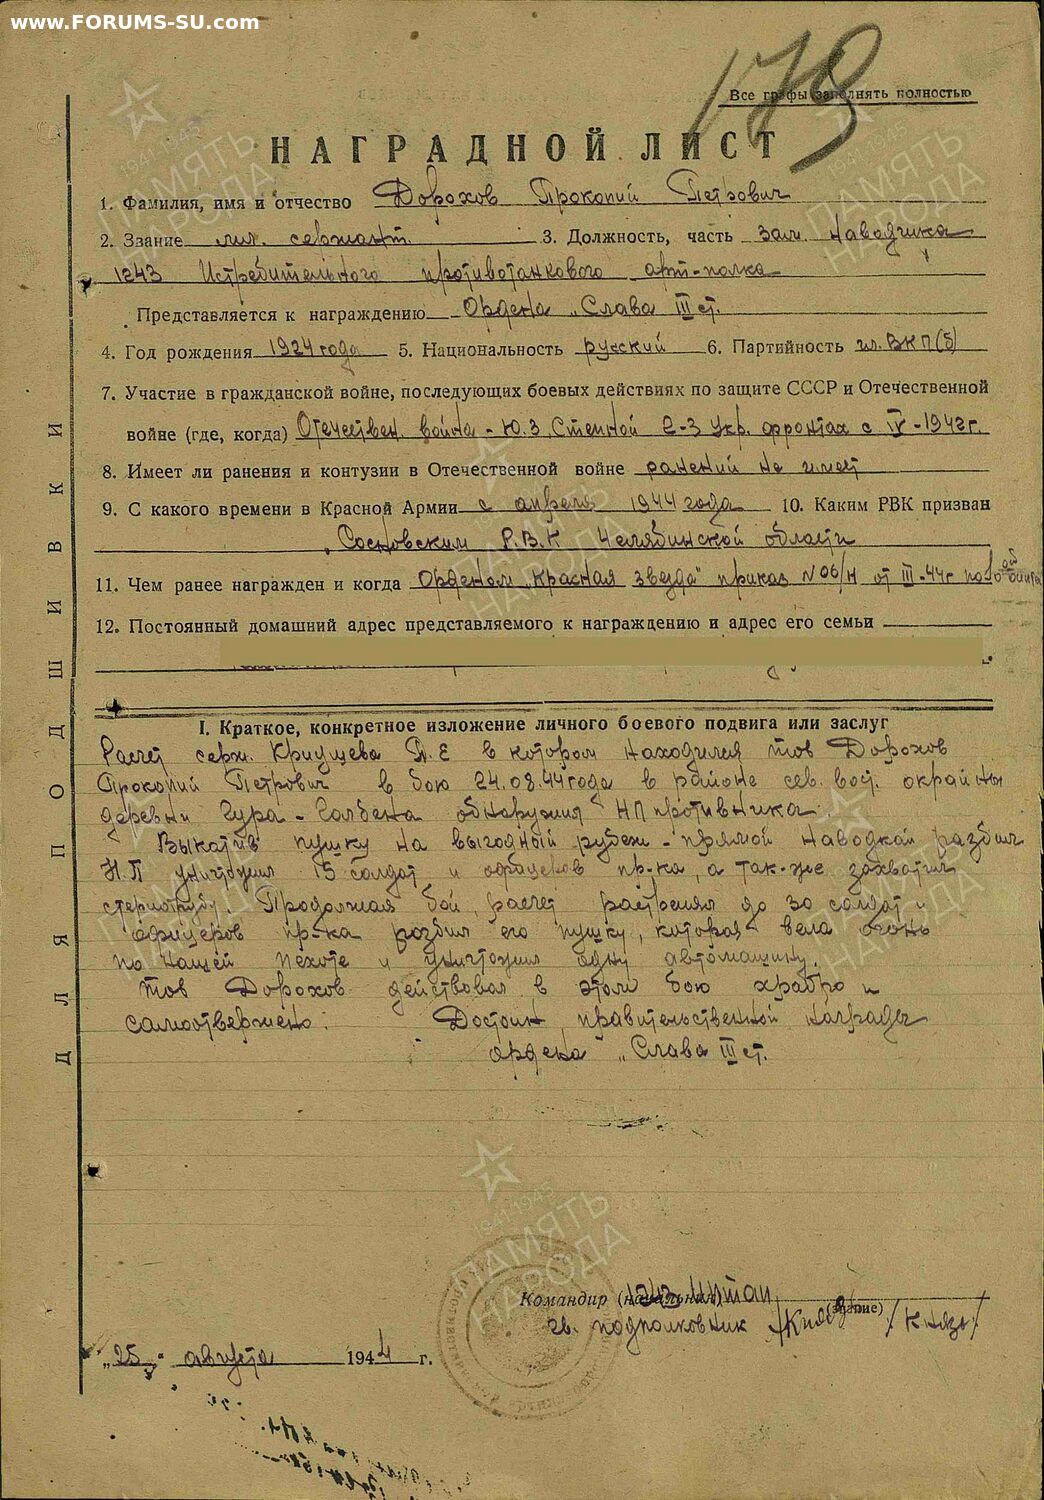 www.FORUMS-SU.com
179
Все графы заполнять полностью
НАГРАДНОЙ ЛИСТ
1. Фамилия, имя и отчество Дорохов Прокопий Петрович
2. Звание мл. сержант. 3. Должность, часть зам. наводчика
1243 Истребительного противотанкового арт-полка
Представляется к награждению Ордена „Слава III ст.
4. Год рождения 1924 года 5. Национальность русский 6. Партийность чл. ВКП(б)
7. Участие в гражданской войне, последующих боевых действиях по защите СССР и Отечественной
войне (где, когда) Отечествен. война - Ю.З, Степной 2-3 Укр. фронтах с IV-1942г.
8. Имеет ли ранения и контузии в Отечественной войне ранений не имеет
9. С какого времени в Красной Армии с апреля 1944 года 10. Каким РВК призван
Сосновским Р.В.К Челябинской области
11. Чем ранее награжден и когда Орденом „Красная звезда" приказ №06/н от III-44г по
12. Постоянный домашний адрес представляемого к награждению и адрес его семьи
I. Краткое, конкретное изложение личного боевого подвига или заслуг
Расчет серж. Криущева П.Е в котором находился тов Дорохов
Прокопий Петрович в бою 24.08.44 года в районе сев. вост. окрайны
деревни Гура-Галбена обнаружил НП противника.
Выкатив пушку на выгодный рубеж - прямой наводкой разбил
Н.П уничтожил 15 солдат и офицеров пр-ка, а так-же захватил
стериотрубу. Продолжая бой, расчет растрелял до 30 солдат и
офицеров пр-ка разбил его пушку, которая вела огонь
по нашей пехоте и уничтожил одну автомашину.
тов Дорохов действовал в этом бою храбро и
самоотвержено. Достоин правительственной награды
ордена „Слава III ст.
Командир (начальник)
(звание)
гв. подполковник
„25" августа 1944 г.
ДЛЯ ПОДШИВКИ
ПАМЯТЬ НАРОДА
1941-1945